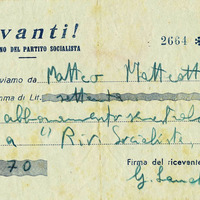 vanti!
NO DEL PARTITO SOCIALISTA
2664
viamo da Matteo Matteott
mma di Lir. settanta
abbonamento
a "Riv. Socialista"
70
Firma del ricevente
G.